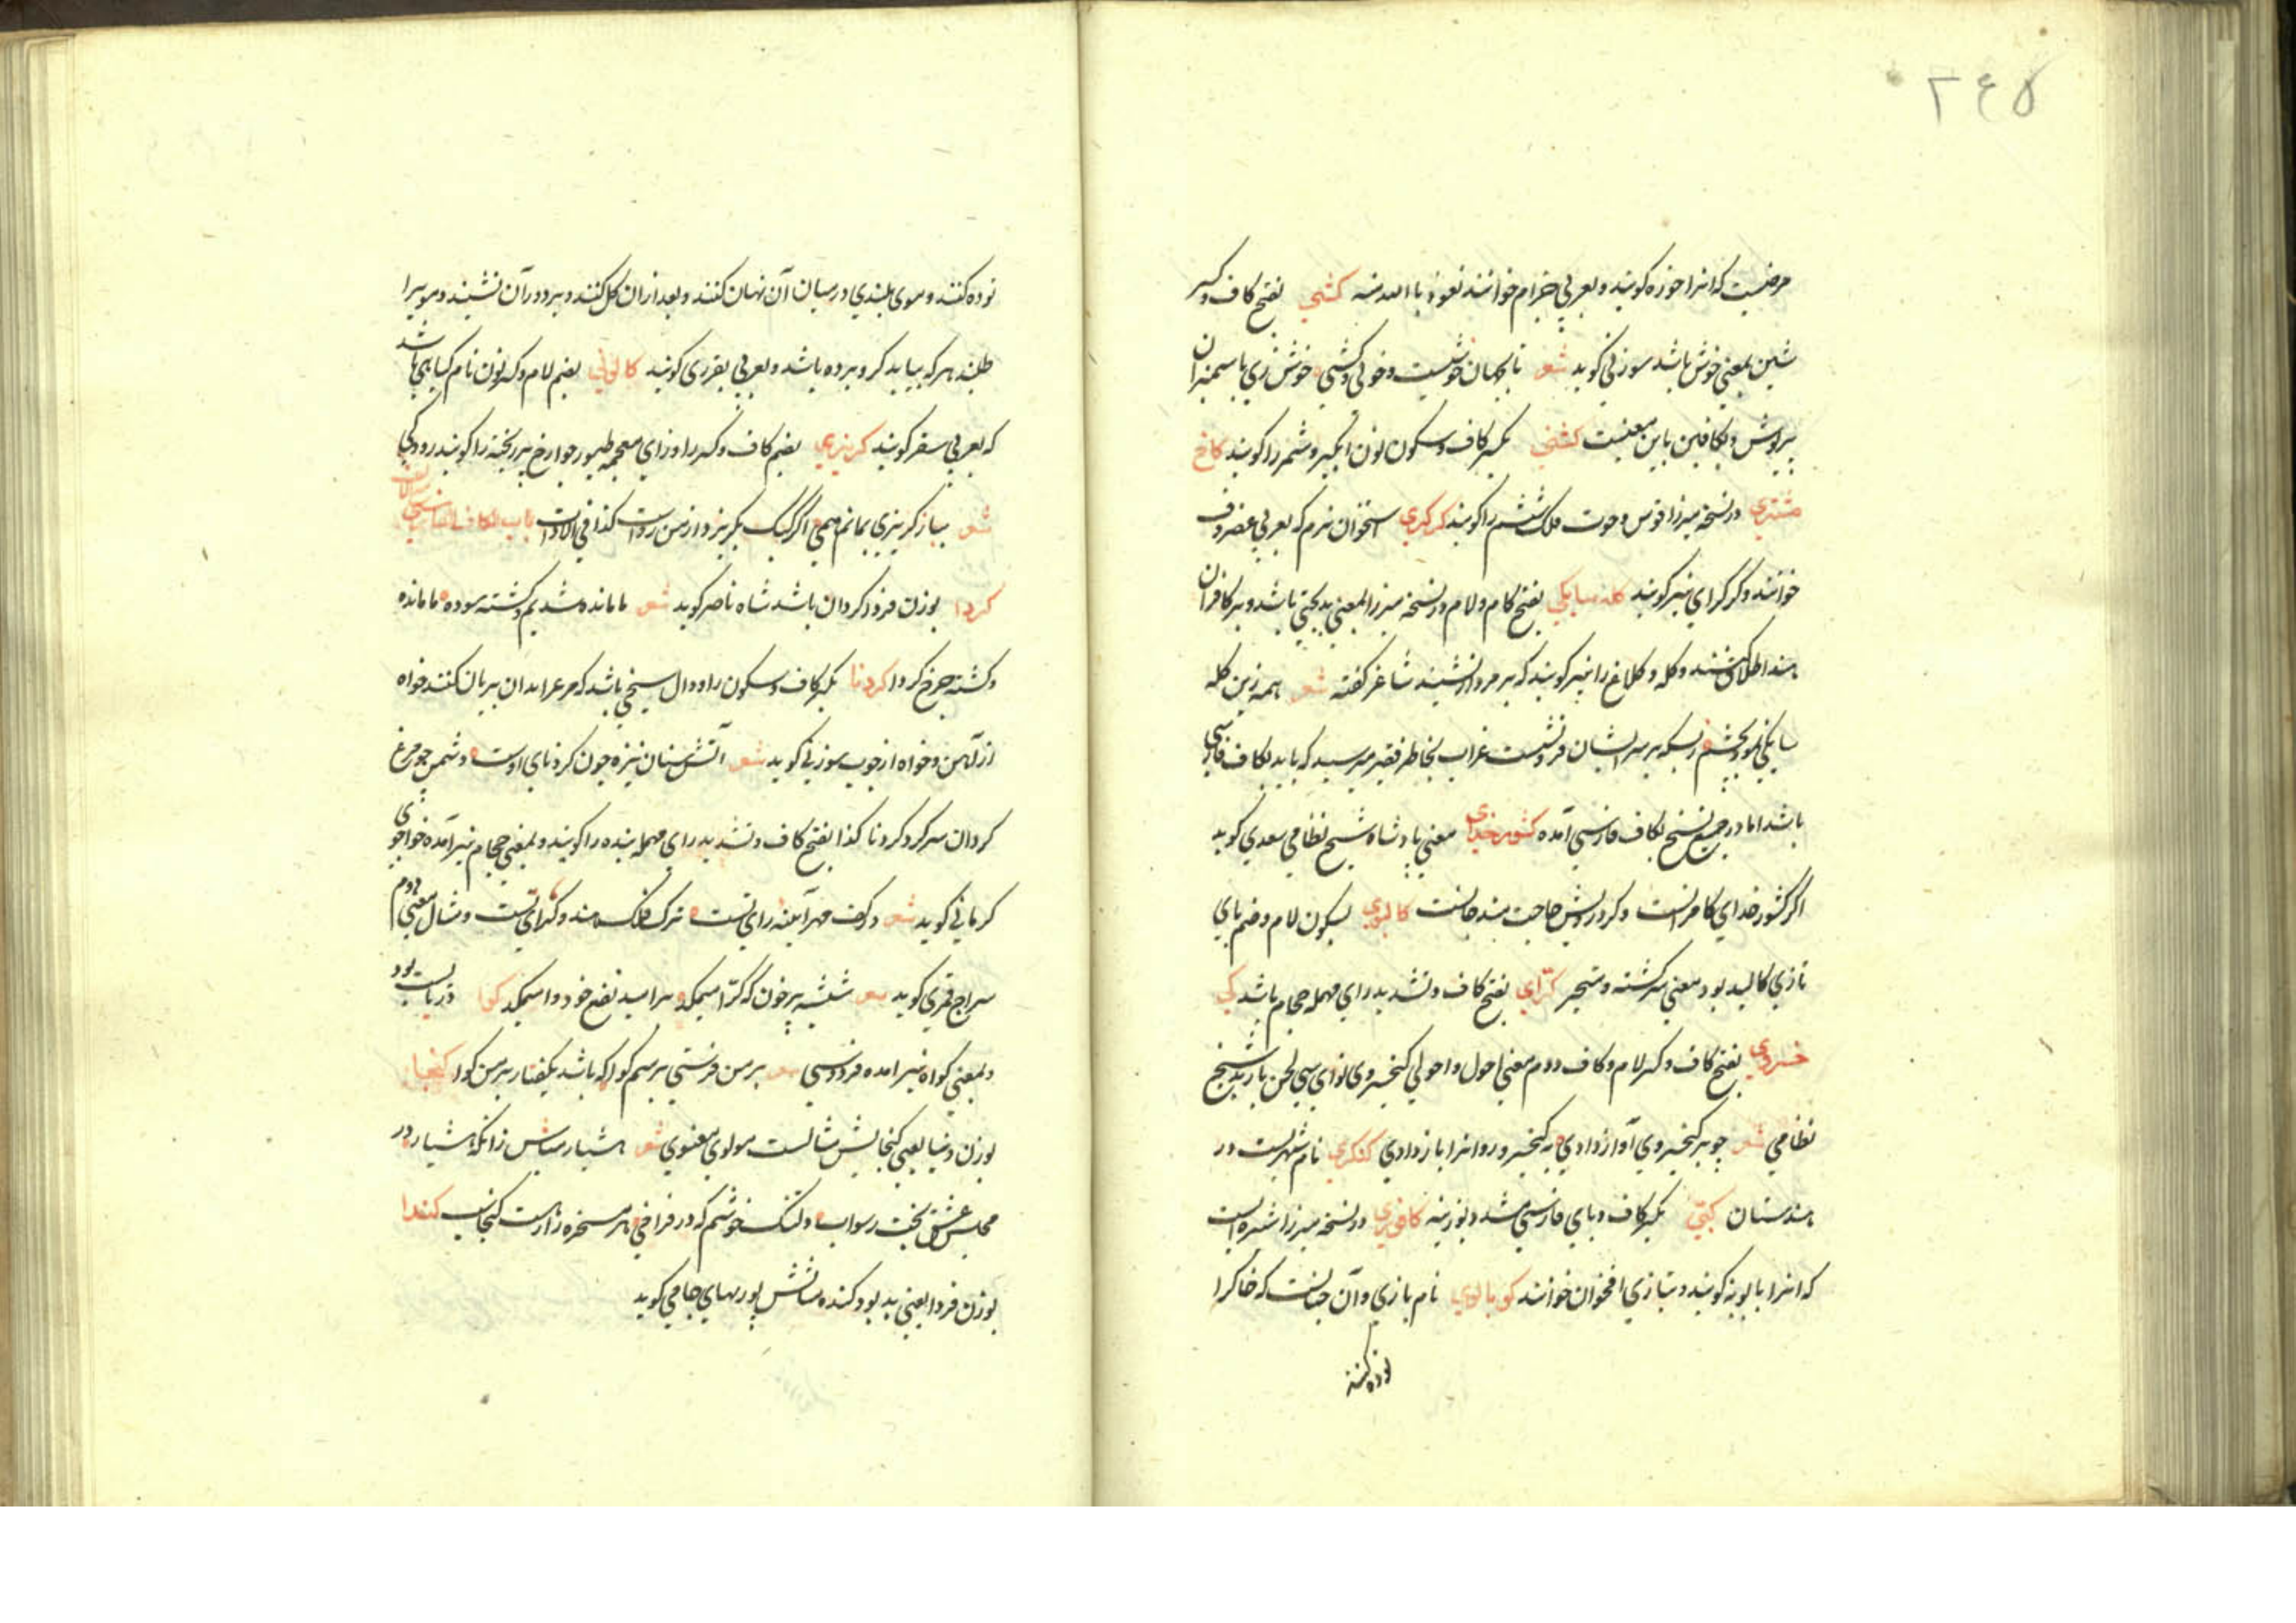 ۲۴۵
مرضیست که انرا خوزه کویند و بعربی جزام خوانند نعوذ باالله منه کشی بفتح کاف و کسر
شین بمعنی خوش باشد سوزنی کوید شعر تا بجهان خوشیست و خولی و کشی خوش زی با سیمبران
پریوش و بکافین باین معنیست کشنی بکسر کاف و سکون نون انکیر و شمر را کویند کاخ
مشتری در نسخه میرزا قوس و حوت فلک ششم را کویند کرکری استخوان نرم که بعربی غضروف
خوانند و کرکرای نیز کویند کله سایکی بفتح کام و لام در نسخه میرزا بمعنی بدبختی باشد و بر کافران
هند اطلاق کنند و کله و کلاغ را نیز کویند که بر مردار نشیند شاعر گفته شعر همه زین کله
سایکی بخشم زبسکه بر سر ایشان فرونشست غراب بخاطر فقیر میرسد که باید بکاف فارسی
باشد اما در جمیع نسخ بکاف فارسی آمده کشور خدای معنی پادشاه شیخ نظامی سعدی کوید
اکر کشور خدای کامرانست و کر درویش حاجت مند جانست کالبوی بسکون لام و ضم بای
تازی کالبد بود معنی سرکشته و متحیر کرای بفتح کاف و تشدید رای مهمله حجام باشد کی
خسروی بفتح کاف و کسر لام و کاف دوم معنی احول و احولی کیخسروی نوای سی لحن باربد شیخ
نظامی شعر چو بر کیخسروی آواز دادی به کیخسرو روانرا باز دادی کنکری نام شهریست در
هندستان کپی بکسر کاف و بای فارسی مشدد بوزینه کافوری در نسخه میرزا سشره ایست
که انرا بابونه کویند و بتازی اقحوان خوانند کوبالوی نام بازی و آن چنانست که خاکرا
توده کنند
توده کنند و موی بلندی در میان آن نهان کنند و بعد ازان کل کنند و بر دور آن نشینند و مویرا
طلبند هر که بیابد کرو برده باشد و بعربی بقری کویند کالونی بضم لام و کسر نون نام کیاهی باشد
که بعربی سعر کویند کریزی بضم کاف و کسر را و زای معجمه طیور جوارح پر ریخته را کویند رودکی
شعر بباز کریزی بمانم همی اکر کبک بکریزد از من رواست کذا فی الادات باب الکاف الفارسی مع الالف
کردا بوزن فردا کردان باشد شاه ناصر کوید شعر ما مانده شدیم و کشته سوده ما مانده
و کشته چرخ کردا کردنا بکسر کاف و سکون را و دال سیخی باشد که مرغ بران بریان کنند خواه
از آهن و خواه از چوب سوزنی کوید شعر آتش سنان نیزه چون کردنای اوست دشمن چو مرغ
کردان سرکرد کردنا کذا بفتح کاف و تشدید رای مهمله بنده را کویند و بمعنی حجام نیز آمده خواجوی
کرمانی کوید شعر در کف مهر آینه رای تست ترک فلک هندو کرای تست و مثال معنی دوم
سراج قمری کوید شعر شیشه پر خون که کرا میمکد بر امید نفع خود وا میمکد کوا در یابست بود
و بمعنی کواه نیز آمده فردوسی شعر بر من فرستی برسم کوا که باشد بکفتار بر من کوا کنجا
بوزن دنیا یعنی کنجایش مثالست مولوی معنوی شعر هشیار مباش زانکه هشیار در
مجلس عشق سخت رسواست دلتنک خوشم که در فراخی هر مسخره را رهست کنجاست کندا
بوزن فردا یعنی بد بو و کنده مثالش پور بهای جامی کوید